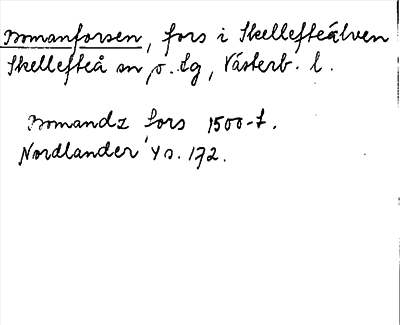 Bomanforsen, fors i Skellefteälven
Skellefteå sn o. tg, Västerb. l.
Bomandz fors 1500-t.
Nordlander Ys. 172.